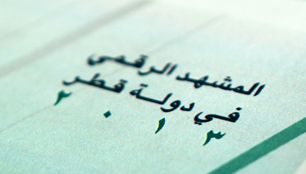 المشهد الرقمي
في دولة قطر
٢٠١٣